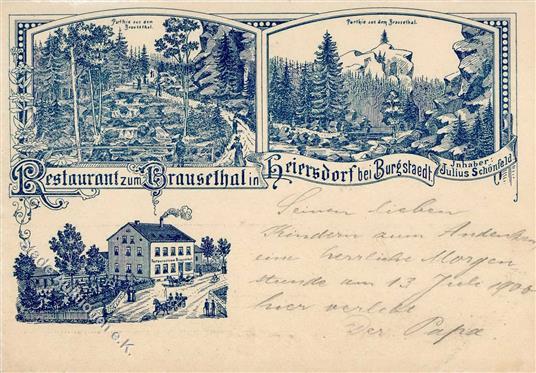 Parthie aus dem
Brausethal.
Parthie aus dem Brausethal.
Restaurant zum Brausethal in Heiersdorf bei Burgstaedt.
Inhaber:
Julius Schönfeld
Seinen lieben
Kindern zum Andenken
eine herrliche Morgen
stunde am 13 Juli 1900
hier verlebt
Der Papa.